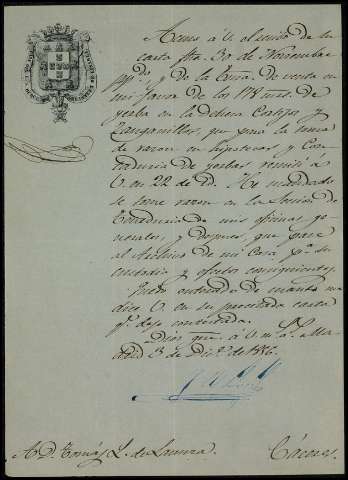 Acuso á V. el recibo de la
carta fha. 30 de Noviembre
ppdo. y de la Escra. de venta en
mi favor de los 178 mrs. de
yerba en la dehesa Cortijos y
Zanganillos, que previa la toma
de razon en hipotecas y Con-
taduria de yerbas remitió á
V. en 22 de id. He mandado
se tome razon en la Seccion de
Teneduria de mis oficinas ge-
nerales, y despues que pase
al Archivo de mi Casa pa. su
custodia y efectos consiguientes.
Quedo enterado de cuanto me
dice V. en su precitada carta
qe. dejo contestada.
Dios gue. á V. m. a. Ma-
drid 3 de Dice. de 1886.
Sr. D. Tomás L. de
Cáceres.